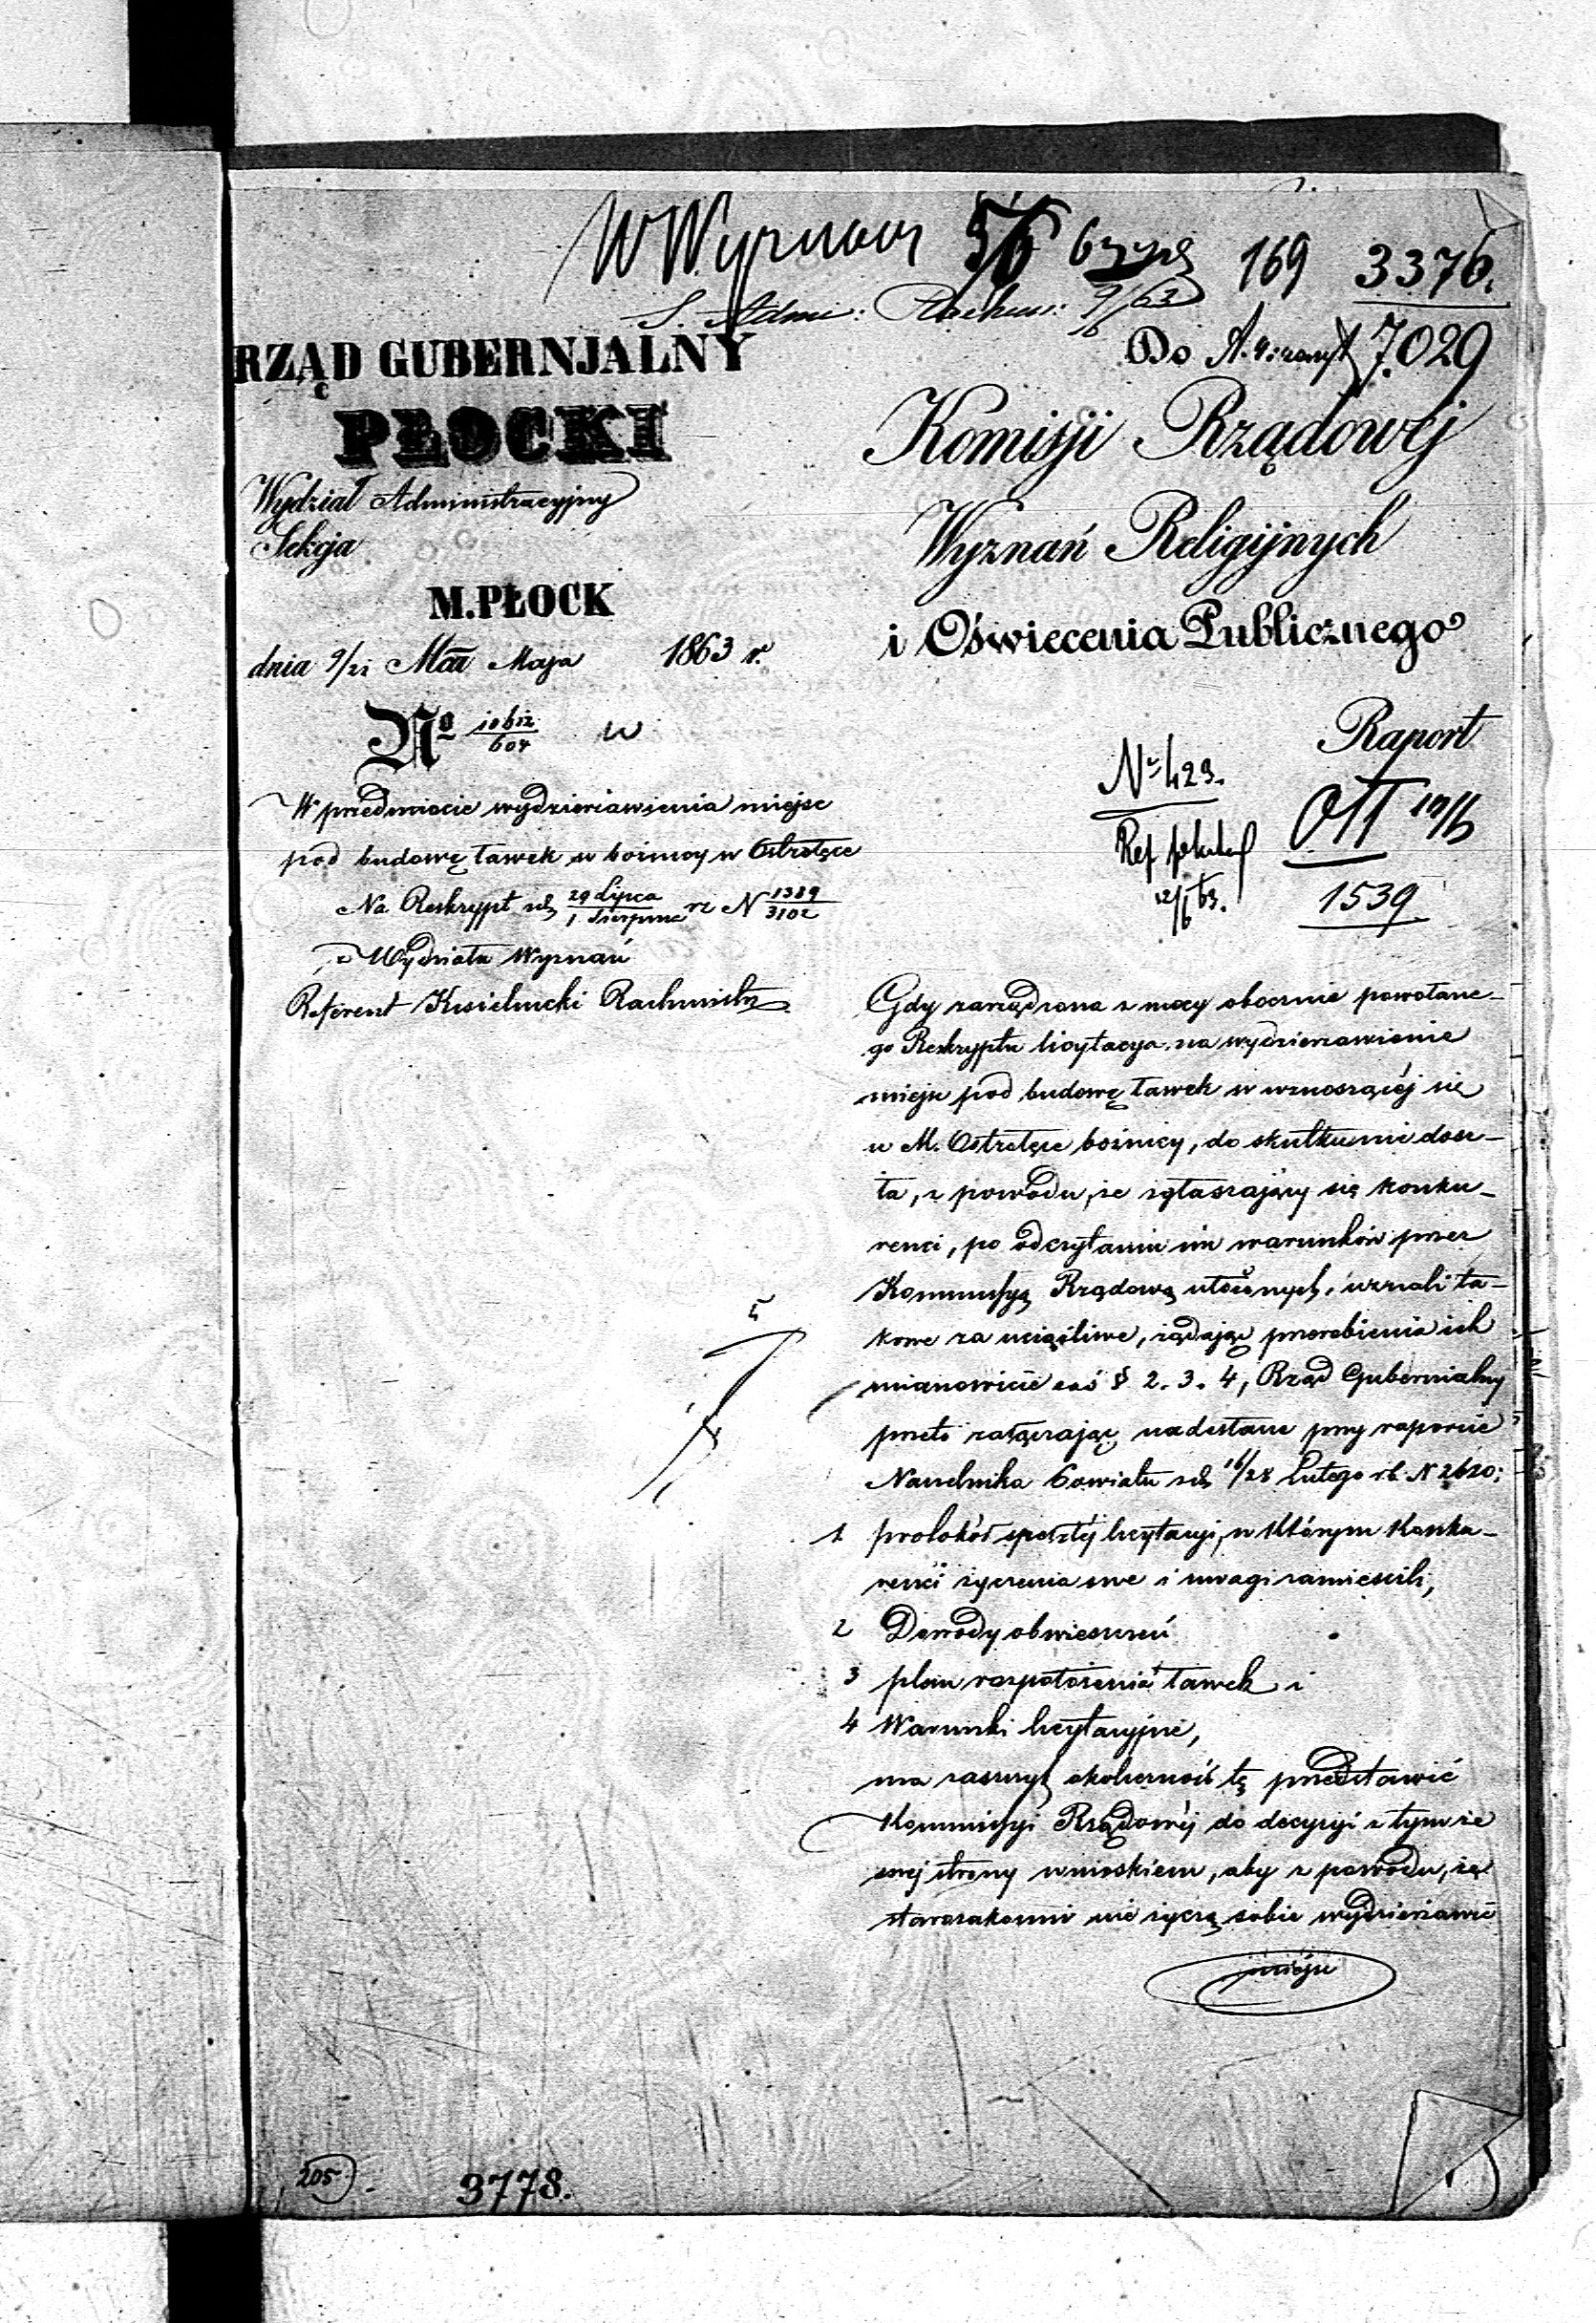 W Wyznań 56 169 3376.
S. Admi: Rachun: 9/6 63
RZĄD GUBERNJALNY
PŁOCKI
Wydział Administracyjny
Sekcja
M. PŁOCK
dnia 9/21 Maja 1863 r.
No 10612/604 w
W przedmiocie wydzierżawienia miejsc
pod budowę ławek w bożnicy w Ostrołęce
Na Reskrypt z d. 29 Lipca/1 Sierpnia rz N 1389/3102
z Wydziału Wyznań
Referent Rachmistrz
Do 7.029
Komisji Rządowéj
Wyznań Religijnych
i Oświecenia Publicznego
Raport
No 429.
Ref 12/6 63.
10/6
1539
Gdy zarządzona z mocy obocznie powołane-
go Reskryptu licytacya na wydzierżawienie
miejsc pod budowę ławek w wznoszącéj się
w M. Ostrołęce bożnicy, do skutku nie dosz-
ła, z powodu, że zgłaszający się konku-
renci, po odczytaniu im warunków przez
Kommissyą Rządową ułożonych, uznali ta-
kowe za uciążliwe, żądając przerobienia ich
mianowicie zaś § 2. 3. 4, Rząd Gubernialny
przeto załączając nadesłane przy raporcie
Naczelnika Powiatu z d. 16/28 Lutego r.b. N 2620;
1 protokół spełzłéj licytacyi, w którym Konku-
renci życzenia swe i uwagi zamieścili,
2 Dowody obwieszczeń
3 plan rozpołożenia ławek i
4 Warunki licytacyjne,
ma zaszczyt okoliczność tę przedstawić
Kommissyi Rządowéj do decyzyi z tym ze
swej strony wnioskiem, aby z powodu, że
starozakonni nie życzą sobie wydzierżawić
miejsc
205
3778.